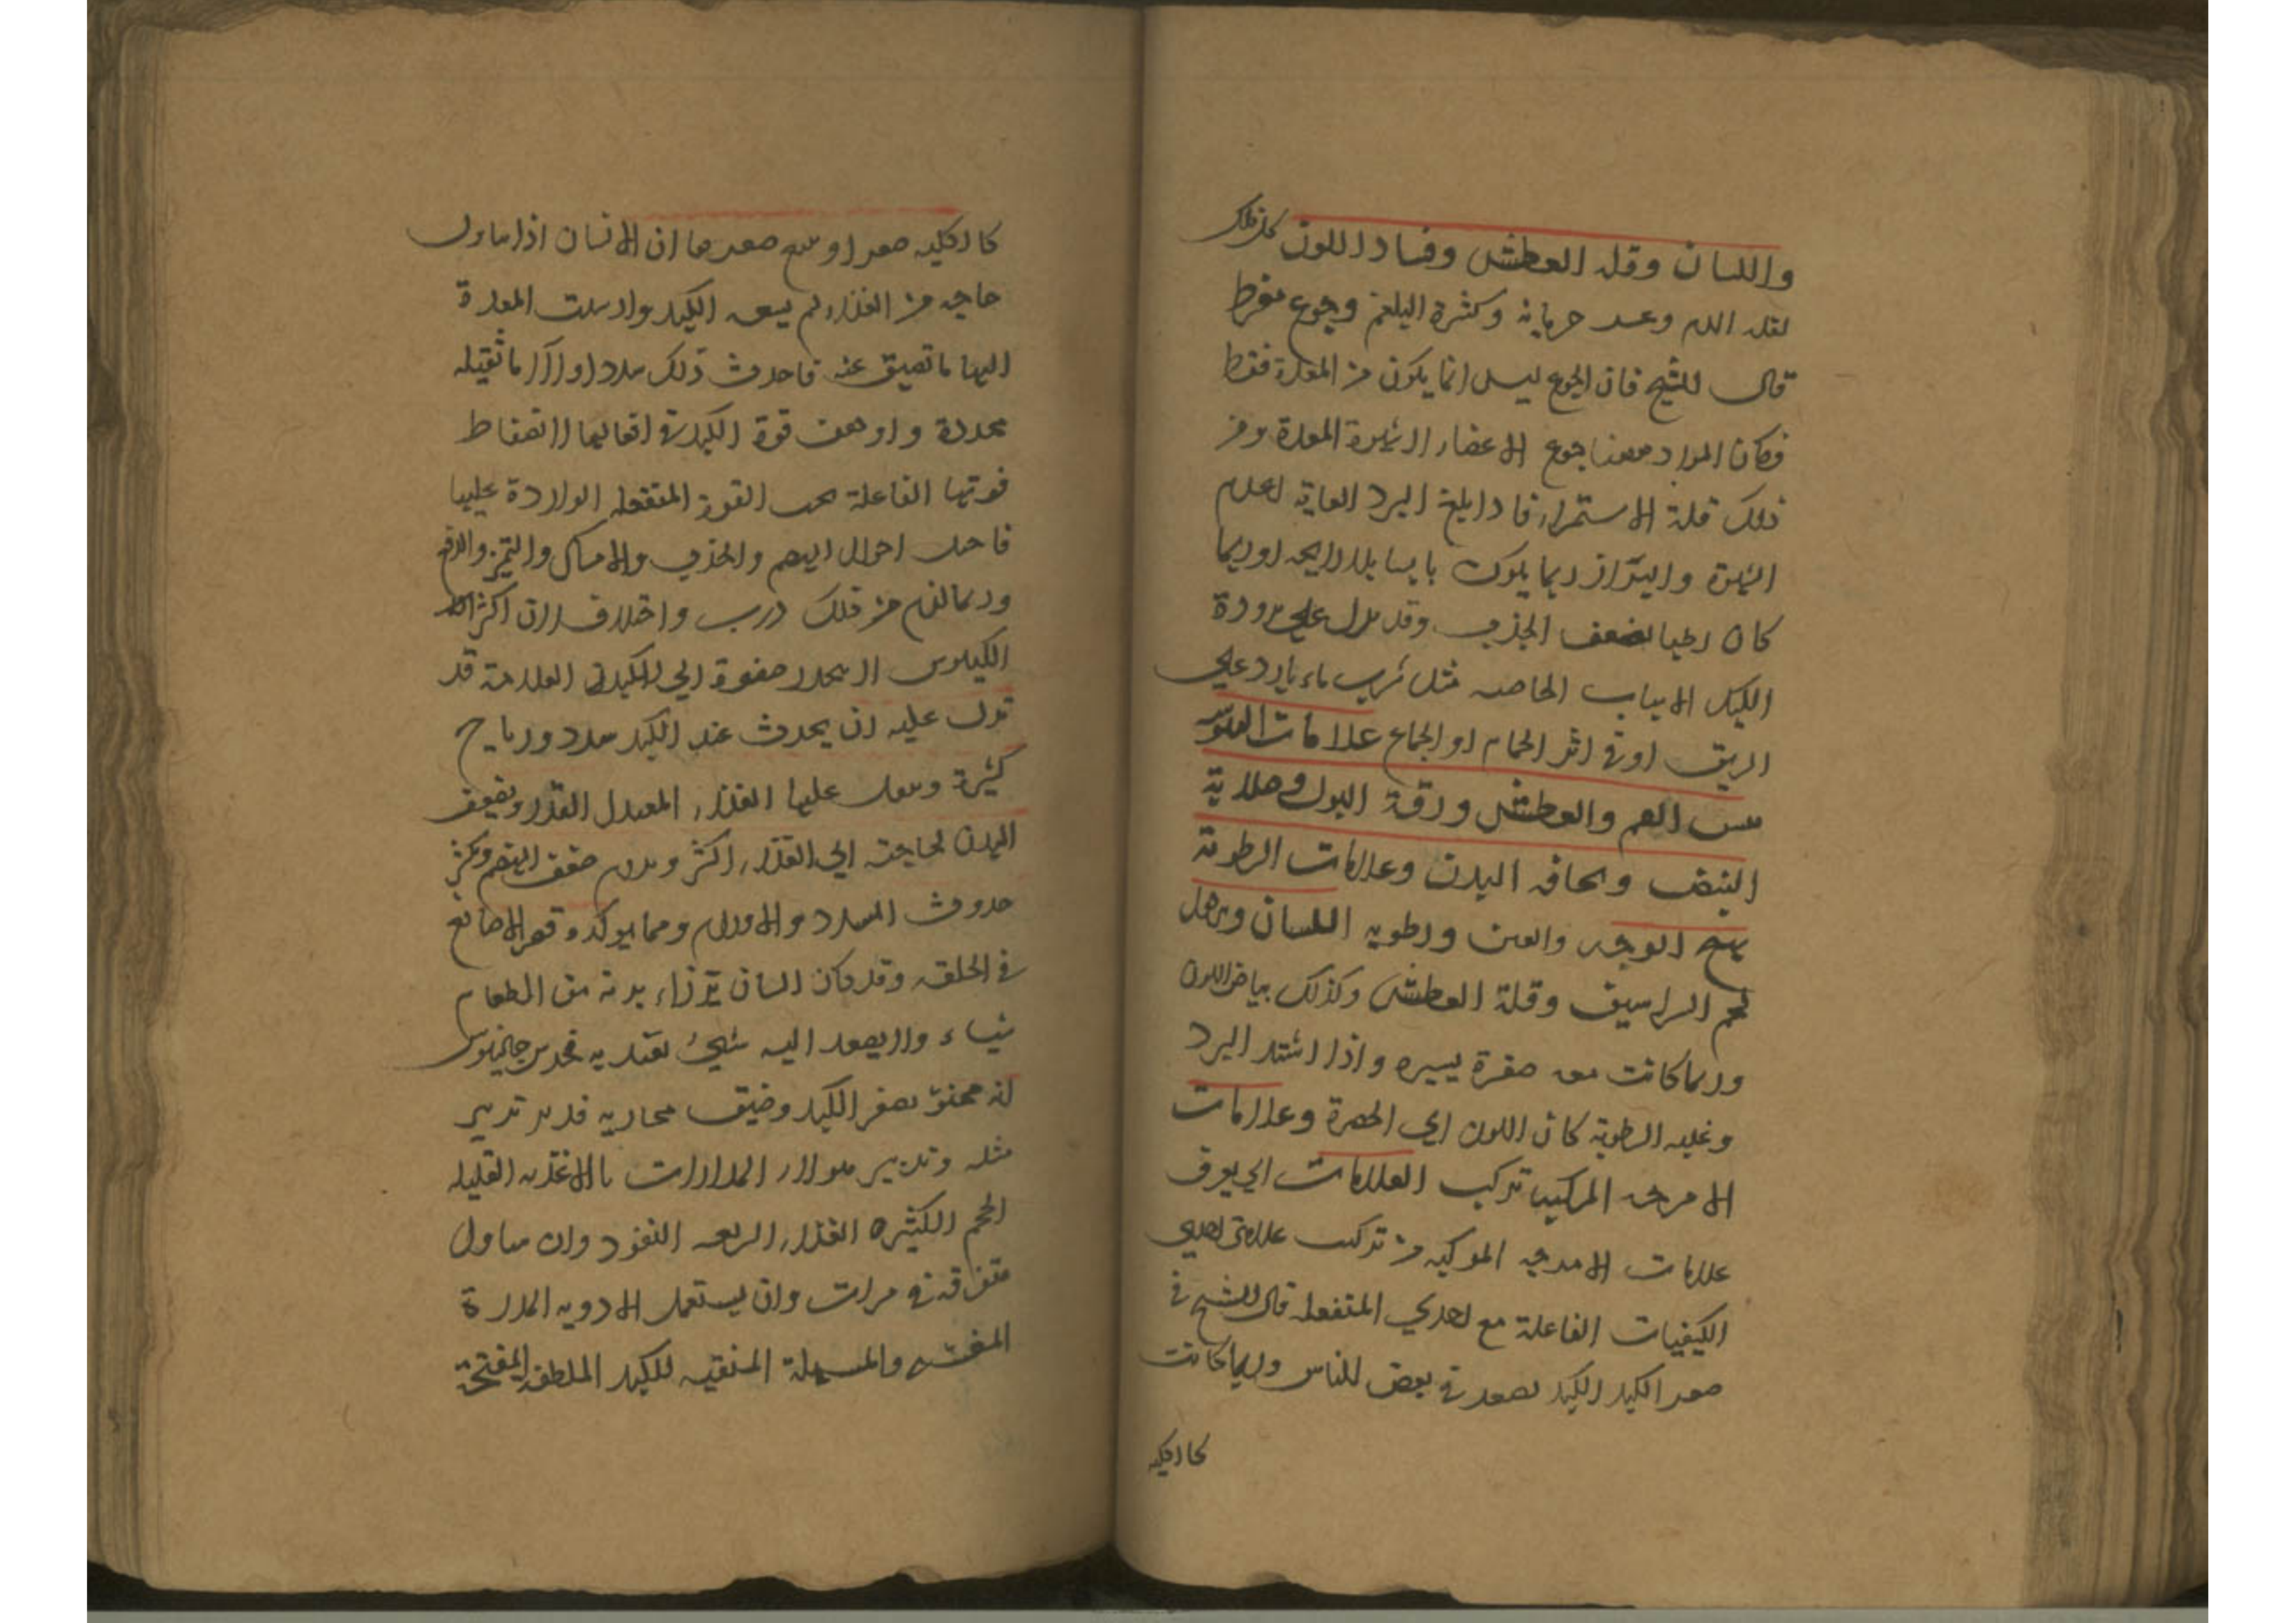 واللسان وقله العطش وفساد اللون كل ذلك
لقله الدم وعد حريانه وكثرة البلغم وجوع مفرط
قال الشيخ فان الجوع ليس انما يكون من المعدة فقط
فكان المراد معنا جوع الاعضاء المعدة ومن
ذلك قلة الاستمراء فاذا بلغ البرد الغاية لعدم
والبراز ربما يكون يابسا بلا رايحه وربما
كان رطبا لضعف الجذب وقد يدل على برودة
الكبد الاسباب الخاصه مثل شرب ماء بارد على
الريق او في اثر الحمام او الجماع علامات اليبوسه
يبس الفم والعطش ورقة البول وصلابة
النبض ونحافه البدن وعلامات الرطوبة
تهيج الوجه والعين ورطوبه اللسان وترهل
لحم الشراسيف وقلة العطش وكذلك بياض اللون
وربما كانت معه صفرة يسيره واذا اشتد البرد
وغلبه الرطوبة كان اللون الى الخضرة وعلامات
الامزجه المركبه تركيب العلامات اي يعرف
علامات الامزجه المركبه من تركيب علامتي احدي
الكيفيات الفاعلة مع احدي المنفعله قال الشيخ في
صغر الكبد الكبد تصغر في بعض الناس وربما كانت
كالكليه
كالكليه صغرا ويتبع صغرها ان الانسان اذا تناول
حاجه من الغذاء لم يسعه الكبد وارسلت المعدة
اليها ما تضيق عنه فاحدث ذلك سددا والاما ثقيله
ممددة واوهنت قوة الكبد في افعالها لانضغاط
قوتها الفاعلة تحت القوة المنفعله الواردة عليها
فاختل احوال الهضم والجذب والامساك والتميز والدفع
وربما لزم من ذلك ذرب واختلاف لان اكثر
الكيلوس لا ينجذب صفوة الى الكبد العلامة قد
تدل عليه ان يحدث عند الكبد سدد ورياح
كثيرة ويثقل عليها الغذاء المعتدل القدر ويضعف
البدن لحاجته الى الغذاء اكثر ويدوم ضعف الهضم ويكثر
حدوث السدد والاورام ومما يوكده قصر الاصابع
في الخلقه وقد كان انسان يرزاء بدنه من الطعام
شياء ولا يصعد اليه شيئ يغتدي به فحدس جالينوس
انه ممنو بصغر الكبد وضيق مجاريه فدبره تدبير
مثله وتدبير هولاء المداراة بالاغذيه القليله
الحجم الكثيره الغذاء السريعه النفوذ وان يتناول
متفرقة في مرات وان يستعمل الادويه المدرة
والمسهلة المنقيه للكبد الملطفه المفتحة